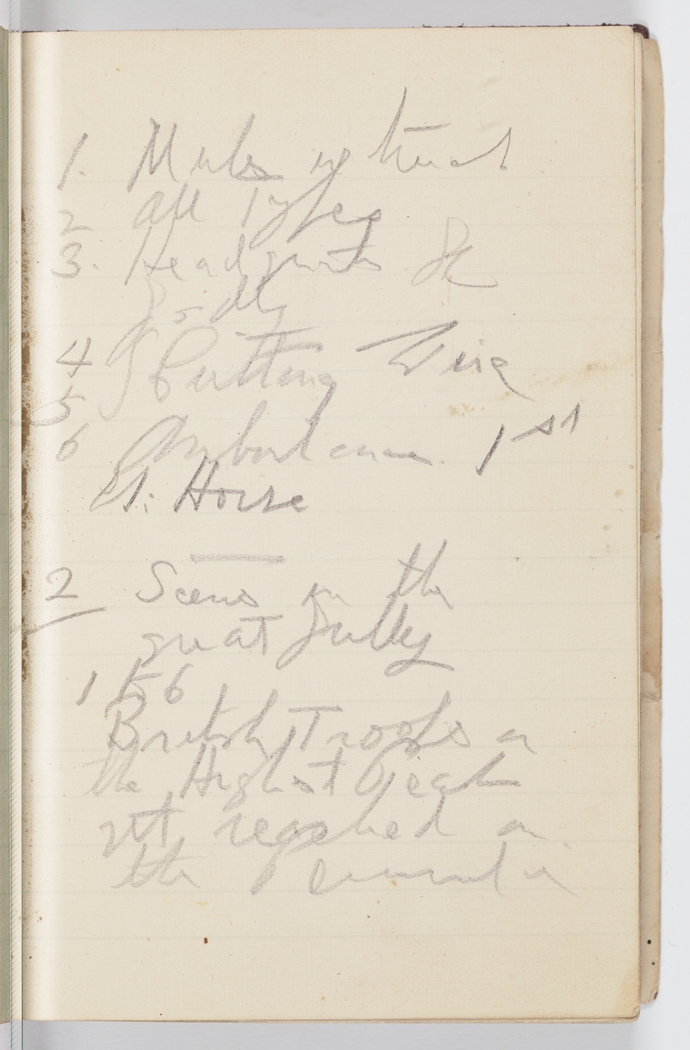 1. Mules in trench
2 all types
3. Headquarters
4 Putting Wire
5
6 Ambulance 1st
Lt. Horse
2 Scenes in the
great Gully
1 to 6
British Troops on
the Highest Peak
yet reached on
the Peninsula